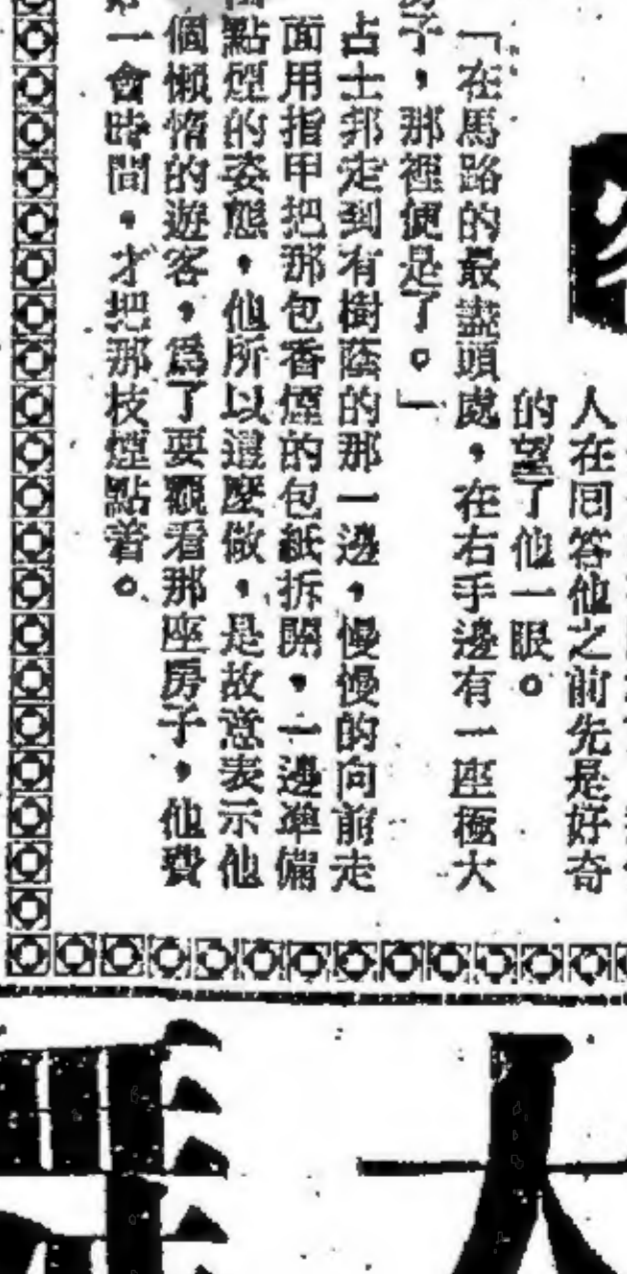 人在回答他之前先是好奇
的望了他一眼。
「在馬路的最盡頭處，在右手邊有一座極大
子，那裡便是了。」
占士邦走到有樹蔭的那一邊，慢慢的向前走
面用指甲把那包香煙的包紙拆開，一邊準備
點煙的姿態，他所以這麼做，是故意表示他
個懶惰的遊客，爲了要觀看那座房子，他費
一會時間，才把那枝煙點着。
大